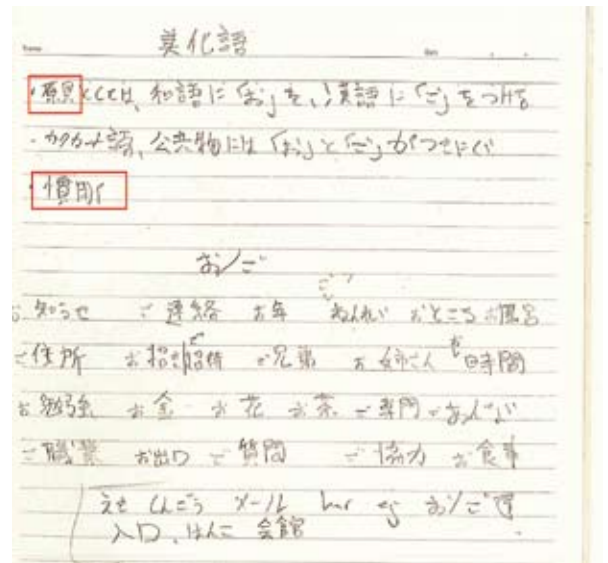 美化語
・原則としては、和語に「お」を、漢語に「ご」をつける
・カタカナ語、公共物には「お」と「ご」がつきにくい
・慣用
お/ご
お知らせ ご連絡 お年 ねんれい おところ お風呂
ご住所 お招き ご招待 ご兄弟 お姉さん お時間
お勉強 お金 お花 お茶 ご専門
ご職業 お出口 ご質問 ご協力 お食事
メール har ej お/ご
入口、はんこ 会館